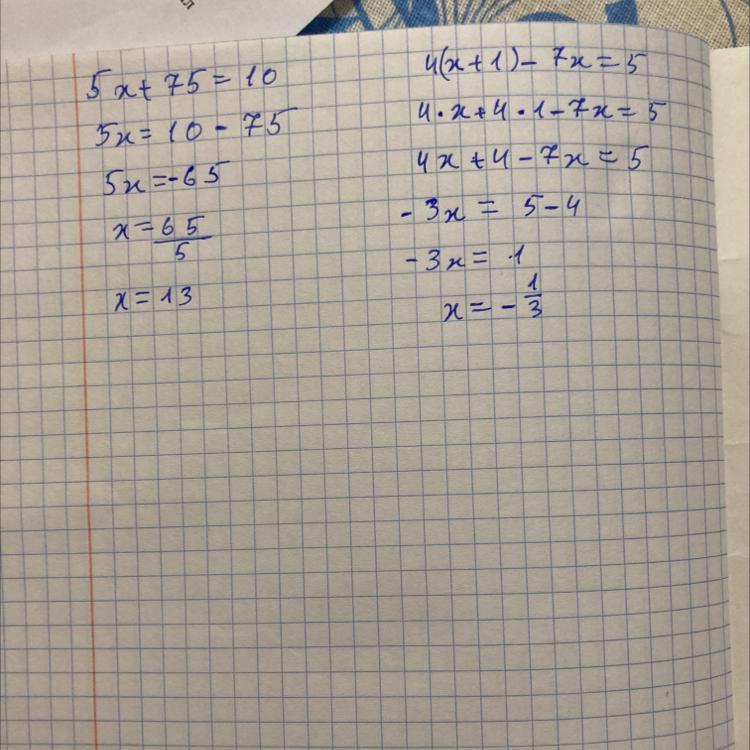 5x + 75 = 10
5x = 10 - 75
5x = -65
x = 65/5
x = 13
4(x + 1) - 7x = 5
4 · x + 4 · 1 - 7x = 5
4x + 4 - 7x = 5
- 3x = 5 - 4
- 3x = 1
x = - 1/3